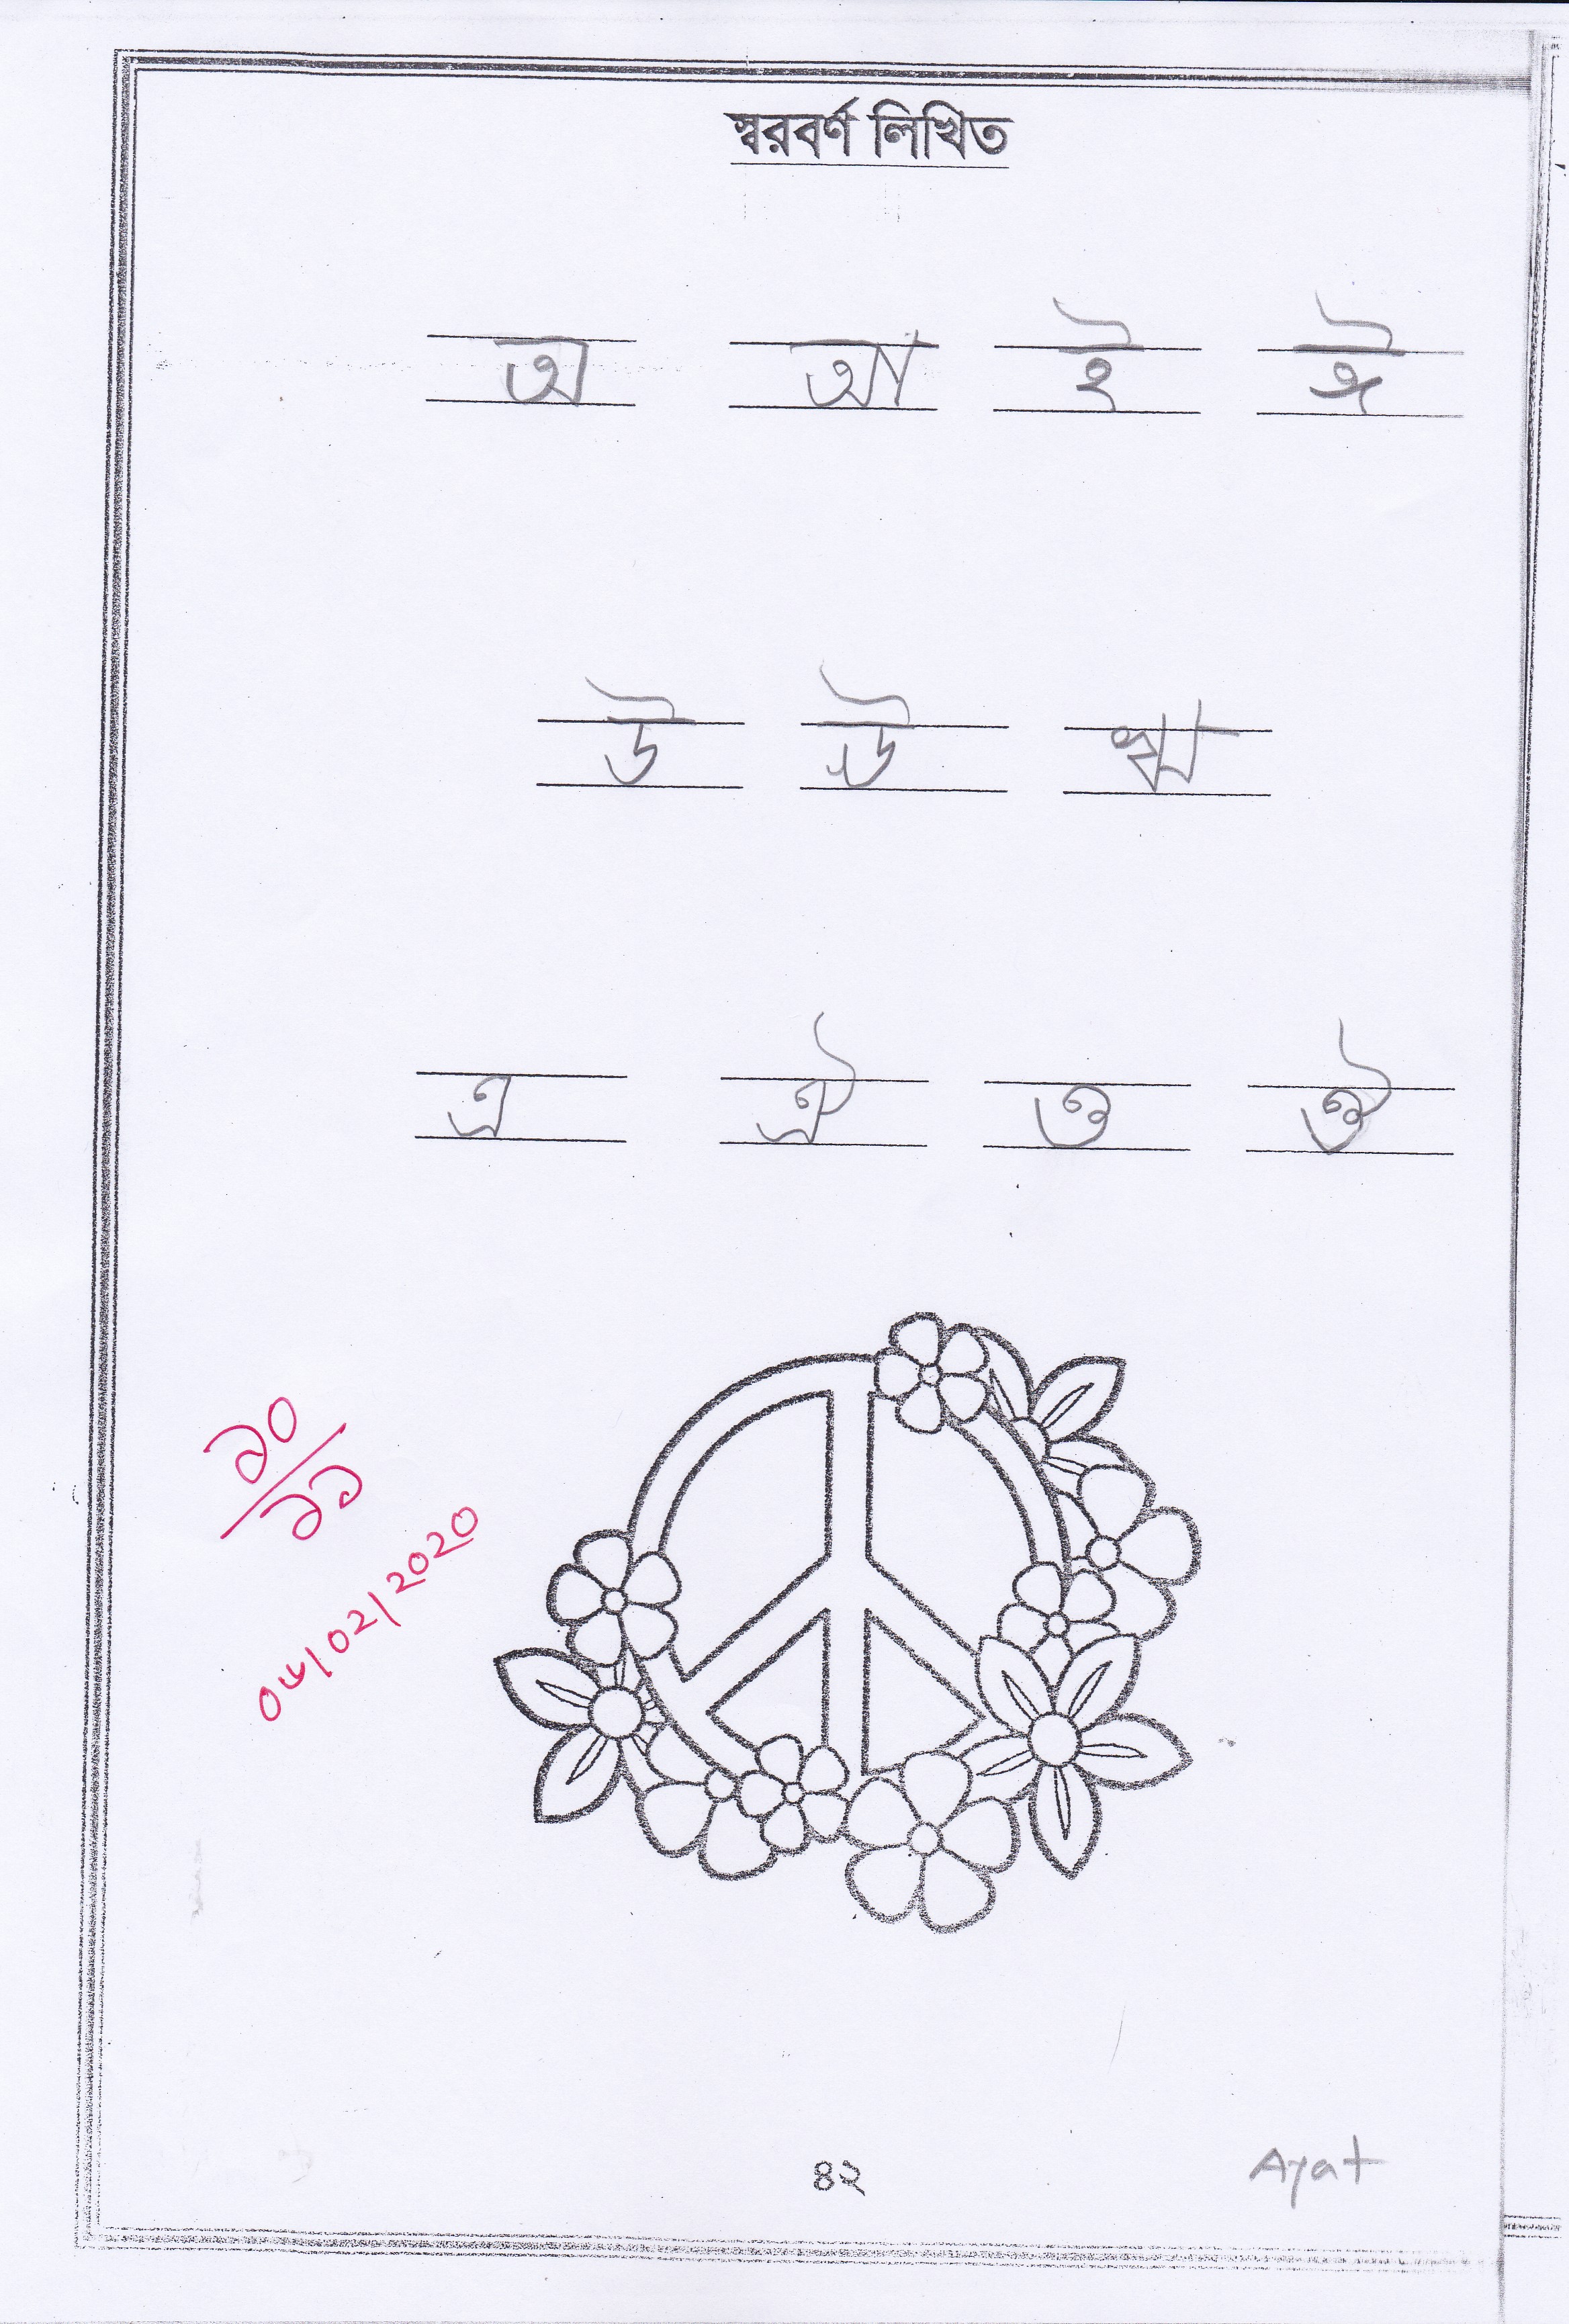 স্বরবর্ণ লিখিত
অ আ ই ঈ
উ ঊ ঋ
এ ঐ ও ঔ
১০
১১
04/02/2020
৪২
Ayat